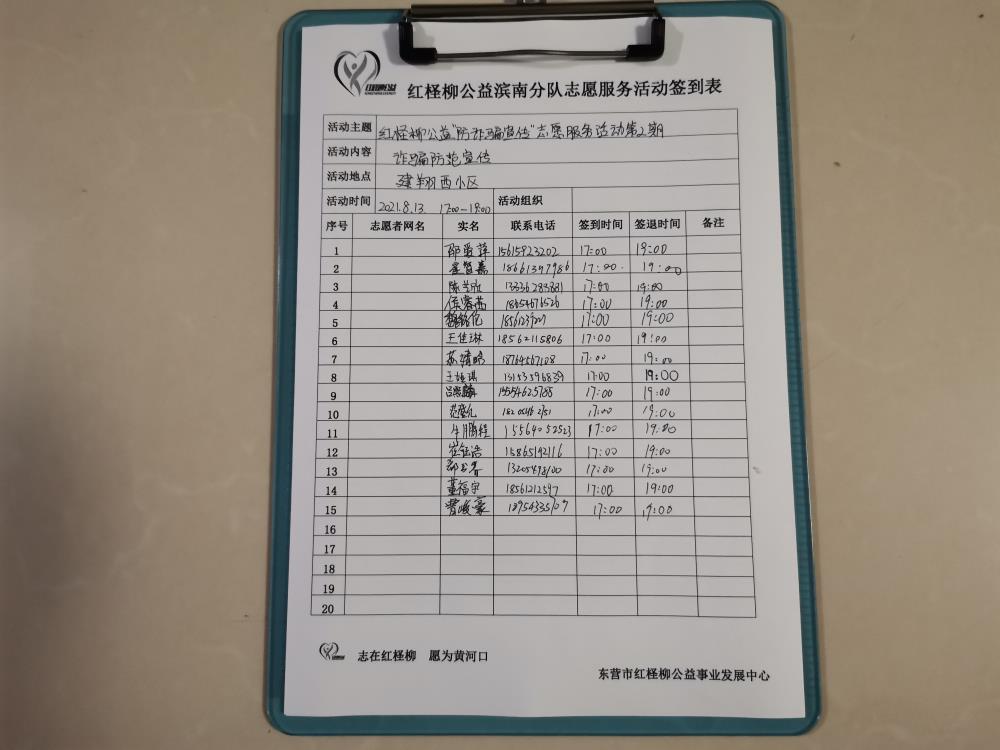 红柽柳公益滨南分队志愿服务活动签到表
活动主题 红柽柳公益"防诈骗宣传"志愿服务活动第2期
活动内容 诈骗防范宣传
活动地点 建翔西小区
活动时间 2021.8.13. 17:00-19:00 活动组织
序号 志愿者网名 实名 联系电话 签到时间 签退时间 备注
1 15615923202 17:00 19:00
2 18661397986 17:00 19:00
3 13336283881 17:00 19:00
4 18654676526 17:00 19:00
5 17:00 19:00
6 王佳琳 18562115806 17:00 19:00
7 18764567108 17:00 19:00
8 13153596839 17:00 19:00
9 15554625788 17:00 19:00
10 17:00 19:00
11 牛鹏程 15564052523 17:00 19:00
12 崔钰浩 15865192116 17:00 19:00
13 13205478100 17:00 19:00
14 董福宇 18561212597 17:00 19:00
15 曹峻豪 18954335709 17:00 19:00
16
17
18
19
20
志在红柽柳 愿为黄河口
东营市红柽柳公益事业发展中心